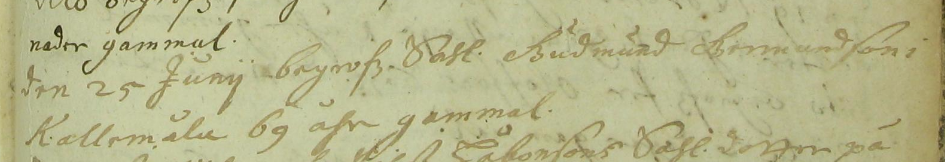 nader gammal.
den 25 Junij begrofs Sahl. Gudmund Bermundson i
Kallemåla 69 åhr gammal.
Sahl. dotter på